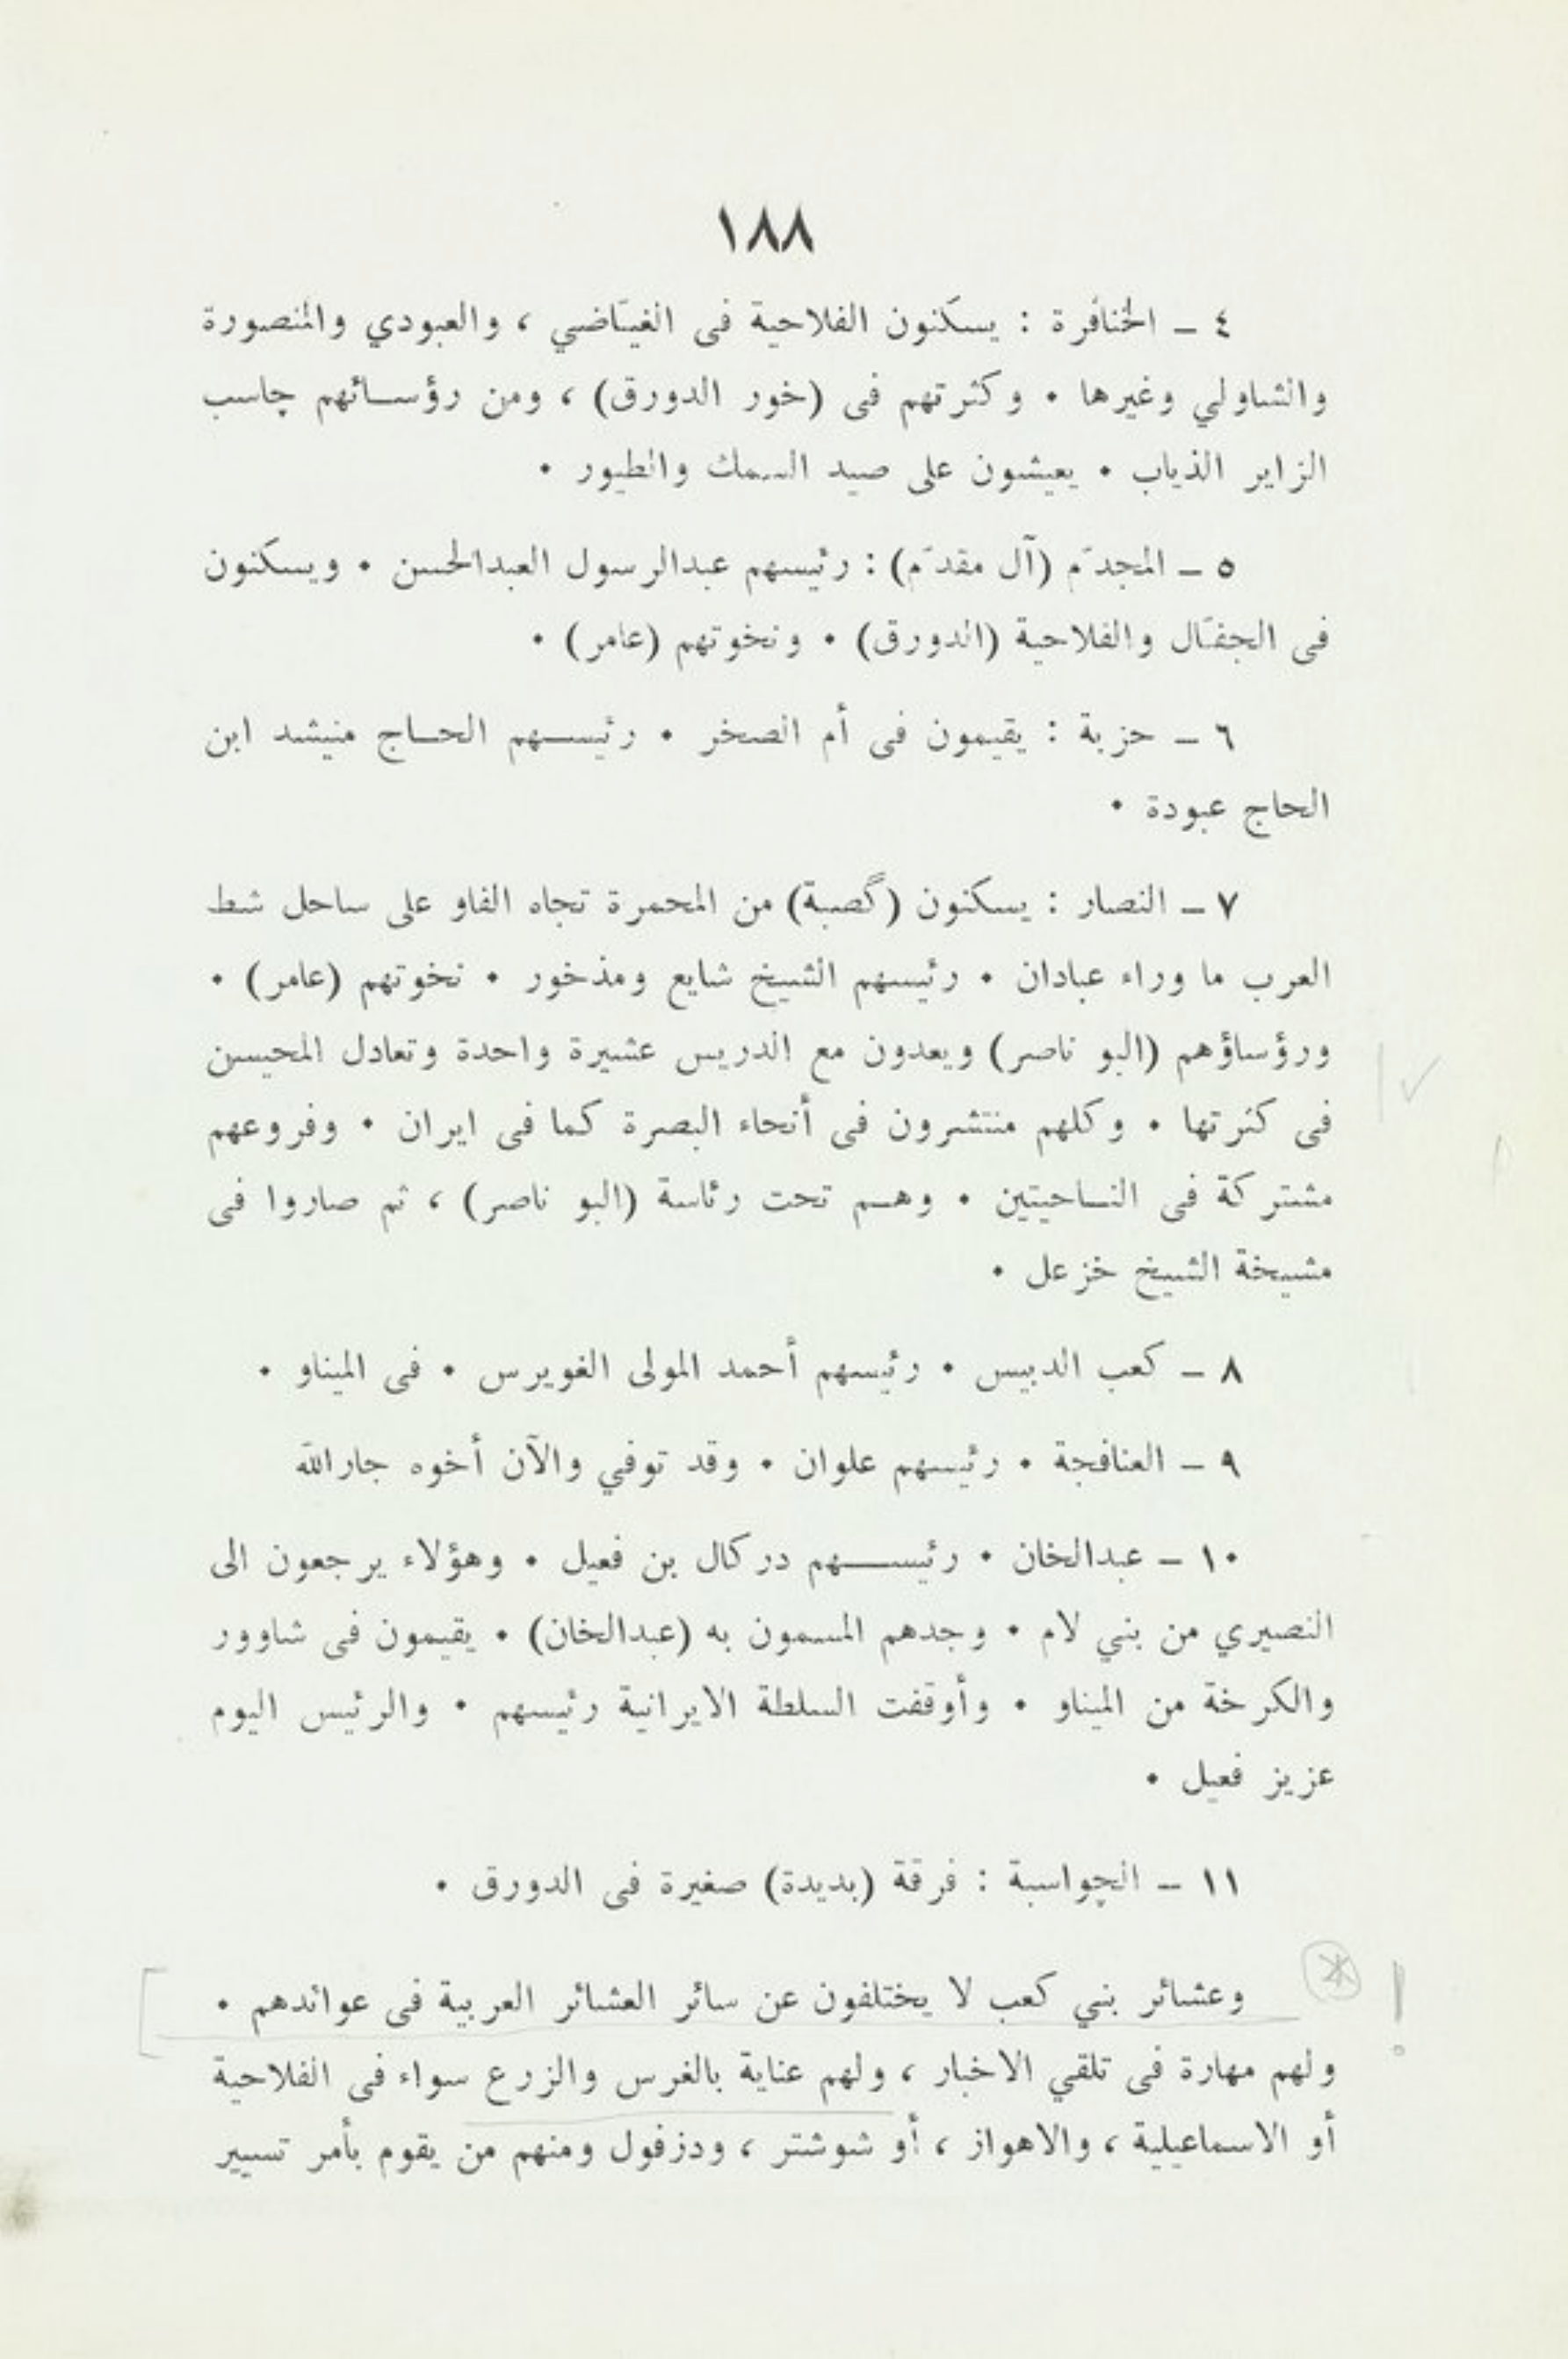 ١٨٨
٤ ـ الخنافرة : يسكنون الفلاحية فى الغيّاضي ، والعبودي والمنصورة
والشاولي وغيرها ٠ وكثرتهم فى (خور الدورق) ، ومن رؤسائهم چاسب
الزاير الذياب ٠ يعيشون على صيد السمك والطيور ٠
٥ ـ المجدّم (آل مقدّم) : رئيسهم عبدالرسول العبدالحسن ٠ ويسكنون
فى الجفّال والفلاحية (الدورق) ٠ ونخوتهم (عامر) ٠
٦ ـ حزبة : يقيمون فى أم الصخر ٠ رئيسهم الحاج منيشد ابن
الحاج عبودة ٠
٧ ـ النصار : يسكنون (گصبة) من المحمرة تجاه الفاو على ساحل شط
العرب ما وراء عبادان ٠ رئيسهم الشيخ شايع ومذخور ٠ نخوتهم (عامر) ٠
ورؤساؤهم (البو ناصر) ويعدون مع الدريس عشيرة واحدة وتعادل المحيسن
فى كثرتها ٠ وكلهم منتشرون فى أنحاء البصرة كما فى ايران ٠ وفروعهم
مشتركة فى الناحيتين ٠ وهم تحت رئاسة (البو ناصر) ، ثم صاروا فى
مشيخة الشيخ خزعل ٠
٨ ـ كعب الدبيس ٠ رئيسهم أحمد المولى الغويرس ٠ فى الميناو ٠
٩ ـ العنافجة ٠ رئيسهم علوان ٠ وقد توفي والآن أخوه جارالله
١٠ ـ عبدالخان ٠ رئيسهم دركال بن فعيل ٠ وهؤلاء يرجعون الى
النصيري من بني لام ٠ وجدهم المسمون به (عبدالخان) ٠ يقيمون فى شاوور
والكرخة من الميناو ٠ وأوقفت السلطة الايرانية رئيسهم ٠ والرئيس اليوم
عزيز فعيل ٠
١١ ـ الچواسبة : فرقة (بديدة) صغيرة فى الدورق ٠
وعشائر بني كعب لا يختلفون عن سائر العشائر العربية فى عوائدهم ٠
ولهم مهارة فى تلقي الاخبار ، ولهم عناية بالغرس والزرع سواء فى الفلاحية
أو الاسماعيلية ، والاهواز ، أو شوشتر ، ودزفول ومنهم من يقوم بأمر تسيير